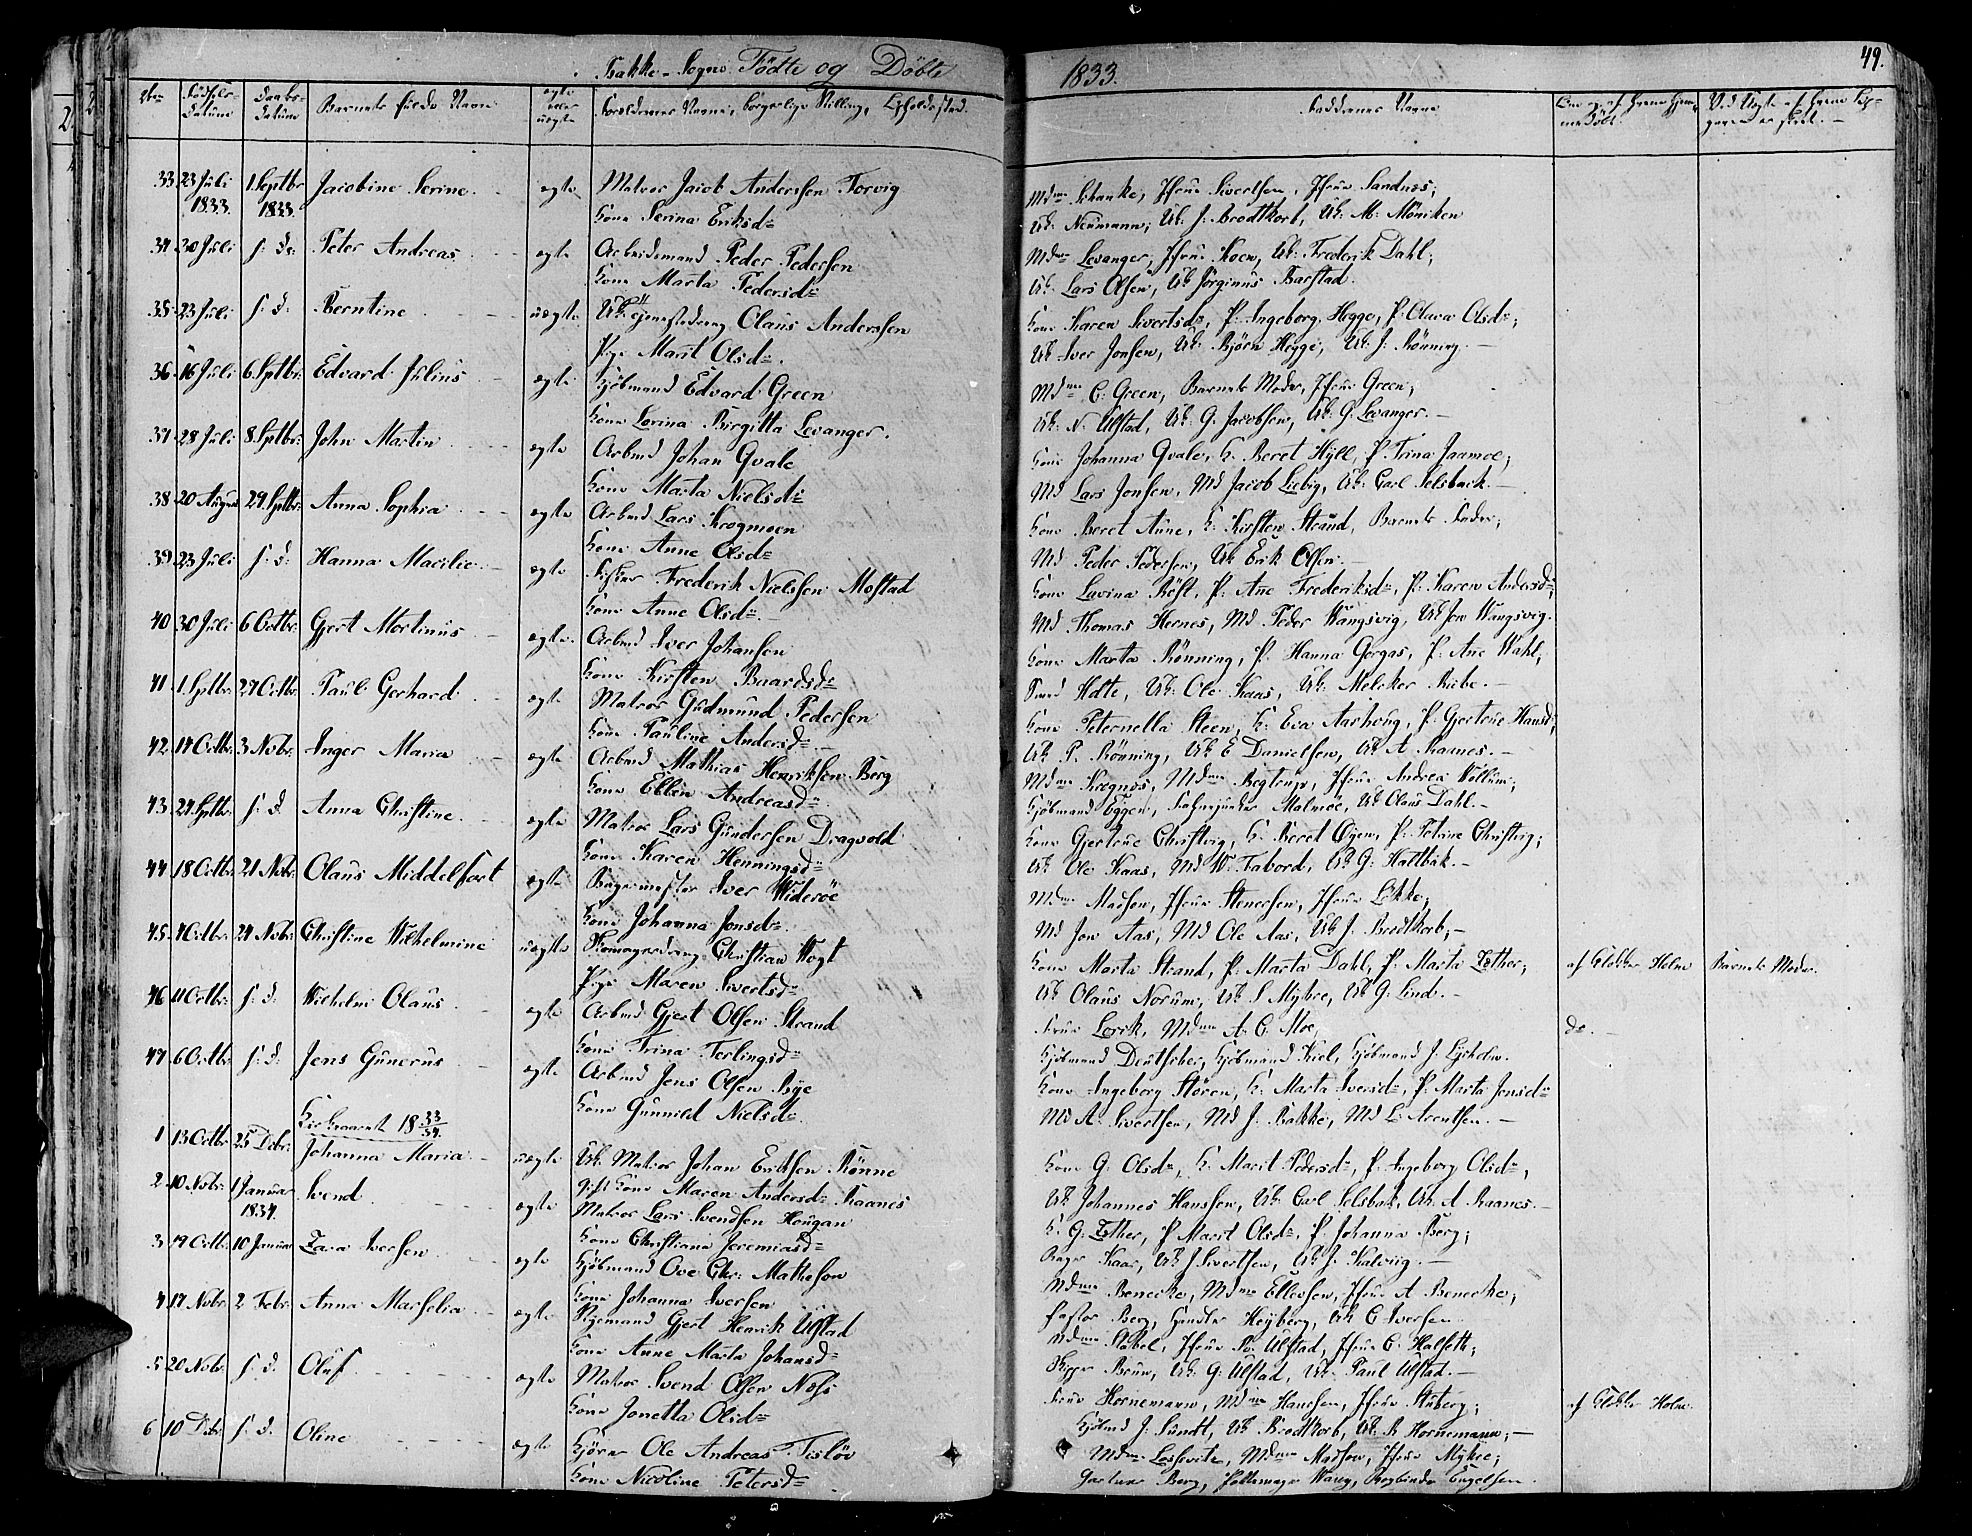 Bakke-Sogns Födte og Döbte
1833.
49.
No
Födsels-Datum
Daabs-Datum
Barnets fulde Navn
ægte eller uægte
Forældrenes Navne, borgerlige Stilling, Opholdssted.
Faddernes Navne
33. 23 Juli 1833. 1. Septbr 1833. Jacobine Serine ægte Matros Jacob Anderssen Torvig
Kone Serina Eriksd=
Mdme Schanke, Jfrue Sivertsen, Jfrue Sandnes;
Uk: Neumann; Uk: J. Brodtkorb, Uk: M: Möniken
34. 30 Juli s: d: Peter Andreas ægte Arbeidsmand Peder Pedersen
Kone Marta Pedersd=
Mdme Levanger, Jfrue Koen, Uk: Frederik Dahl;
Uk: Lars Olsen, Uk Jörginus Barstad.
35. 23 Juli s: d: Berntine uægte Uk: Tjenestedreng Olaus Anderssen
Pige Marit Olsd=.
Kone Karen Sivertsd=, P: Ingeborg Hegge, P: Olava Olsd=;
Uk Iver Jonsen, Uk: Björn Hegge, Uk: J. Rönning.
36. 16 Juli 6. Septbr: Edvard Julius ægte Kjöbmand Edvard Green
Kone Lorina Birgitta Levanger.
Mdme C: Green, Barnets Moder, Jfrue Green;
Uk: N. Ulstad, Uk: G. Jacobsen, Uk: G. Levanger.
37. 28 Juli 8. Septbr: John Martin ægte Arbmd Johan Qvale
Kone Marta Nielsd=
Kone Johanna Qvale, K. Beret Hyll, P. Trina Jaamoe;
Md Lars Jonsen, Md Jacob Liebig, Uk: Carl Selsback.
38. 20 August 29. Septbr: Anna Sophia ægte Arbmd Lars Krogmoen
Kone Anne Olsd=
Kone Beret Aune, K: Kirsten Strand, Barnets Fader;
Md Peder Pedersen, Uk Erik Olsen.
39. 23 Juli s: d: Hanna Marilie ægte Fisker Frederik Nielssen Mostad
Kone Anne Olsd=.
Kone Lavina Röst, P: Ane Frederiksd=, P: Karen Andersd=;
Md Thomas Hernes, Md Peder Wangsvig, Uk Jon Wangsvig.
40. 30 Juli 6 Octbr: Gjert Mortinus ægte Arbmd Iver Johansen
Kone Kirsten Baardsd=
Kone Marta Rönning, P. Hanna Gorgas, P: Ane Wahl;
Svend Holte, Uk: Ole Kaas, Uk: Melcker Riebe.
41. 1. Septbr: 27 Octbr: Paul Gerhard ægte Matros Gudmund Pedersen
Kone Pauline Andersd=
Kone Peternella Steen, K: Eva Aarhoug, P: Gjertrue Hansd=;
Uk: P. Rönning, Uk E Danielsen, Uk A. Raanes.
42. 14 Octbr: 3 Nvbr: Inger Maria ægte Arbmd Mathias Henriksen Berg
Kone Ellen Andreasd=
Mdme Kregnes, Mdme Begtrup, Jfrue Andrea Wollum;
Kjöbmand Eggen, Fahnjunker Malmoe, Uk Olaus Dahl.
43. 24. Septbr s: d Anna Christine ægte Matros Lars Gundersen Dragvold
Kone Karen Henningsd=
Kone Gjertrue Christvig, K: Beret Öyen, P: Petrine Christvig;
Uk Ole Kaas, Md W. Fabord, Uk G: Haltbak.
44. 18 Octbr: 21 Nvbr: Olaus Middelfart ægte Bagermester Iver Wideröe
Kone Johanna Jonsd=.
Mdme Madsen, Jfrue Stenersen, Jfrue Lökke;
Md Jon Aas, Md Ole Aas, Uk J. Brodtkorb;
45. 4 Octbr: 24 Nvbr: Christine Wilhelmine uægte Skomagerdreng Christian Wogt
Pige Maren Sivertsd=
Kone Marta Strand, P: Marta Dahl, P. Marta Lother;
Uk Olaus Norum, Uk S Myhre, Uk G: Lind.
af Klokker Holm Barnets Moder.
46. 11 Octbr: s: d. Wilhelm Olaus ægte Arbmd Gjert Olsen Strand
Kone Trina Terlingsd=
Frue Lorck, Mdme A. C. Moe,
Kjöbmand Deutscher, Kjöbmand Kiel, Kjöbmand J. Lysholm.
do.
47. 6 Octbr: s: d: Jens Gunerus ægte Arbmd Jens Olsen Bye
Kone Gunnild Nielsd=.
Kone Ingeborg Stören, K: Marta Iversd=, P: Marta Jonsd=
Md A. Sivertsen, Md J. Bakke, Md L: Arentsen.
Kirkeaaret 1833/34.
1 13 Octbr 25 Debr: Johanna Maria uægte Uk: Matros Johan Eriksen Rönne
gift Kone Maren Andersd= Raanes
Kone G. Olsd=, K: Marit Pedersd=, P. Ingeborg Olsd=,
Uk Johannes Hanssen, Uk: Carl Selsbak, Uk A. Raanes.
2 10 Nvbr: 1 Januar 1834. Svend ægte Matros Lars Svendsen Hougan
Kone Christiana Jeremiasd=
K. G. Lother, P Marit Olsd=, P. Johanna Berg;
Bager Kaas, Uk J Sivertsen, Uk J. Kalvig.
3 19 Octbr: 10 Januar Lara Iversen ægte Kjöbmand Ove Chr: Matheson
Kone Johanna Iversen
Mdme Benecke, Mdme Ellevsen, Jfrue A Benecke;
Pastor Berg, Handler Heyberg, Uk C Iversen.
4 17 Nvbr: 2 Febr: Anna Marselia ægte Stigemand Gjert Henrik Ulstad
Kone Anne Marta Johansd=
Mdme Stabel, Jfrue Po. Ulstad, Jfrue C. Halseth;
Skipper Bruun, Uk: G. Ulstad, Uk: Paul Ulstad.
5 20 Nvbr: s: d. Oluf ægte Matros Svend Olsen Næss
Kone Jonetta Olsd=
Frue Hornemann, Mdme Hanssen, Jfrue Stuberg;
Kjöbmd J. Sundt, Uk Brodtkorb, Uk: R Hornemann;
af Klokker Holm.
6 10 Debr: s: d. Oline ægte Kjörer Ole Andreas Tislöv
Kone Nicoline Petersd=
Mdme Lossevitz, Mdme Madsen, Jfrue Mykre;
Gartner Berg, Pottemager Warg, Bogbinder Engelsen.